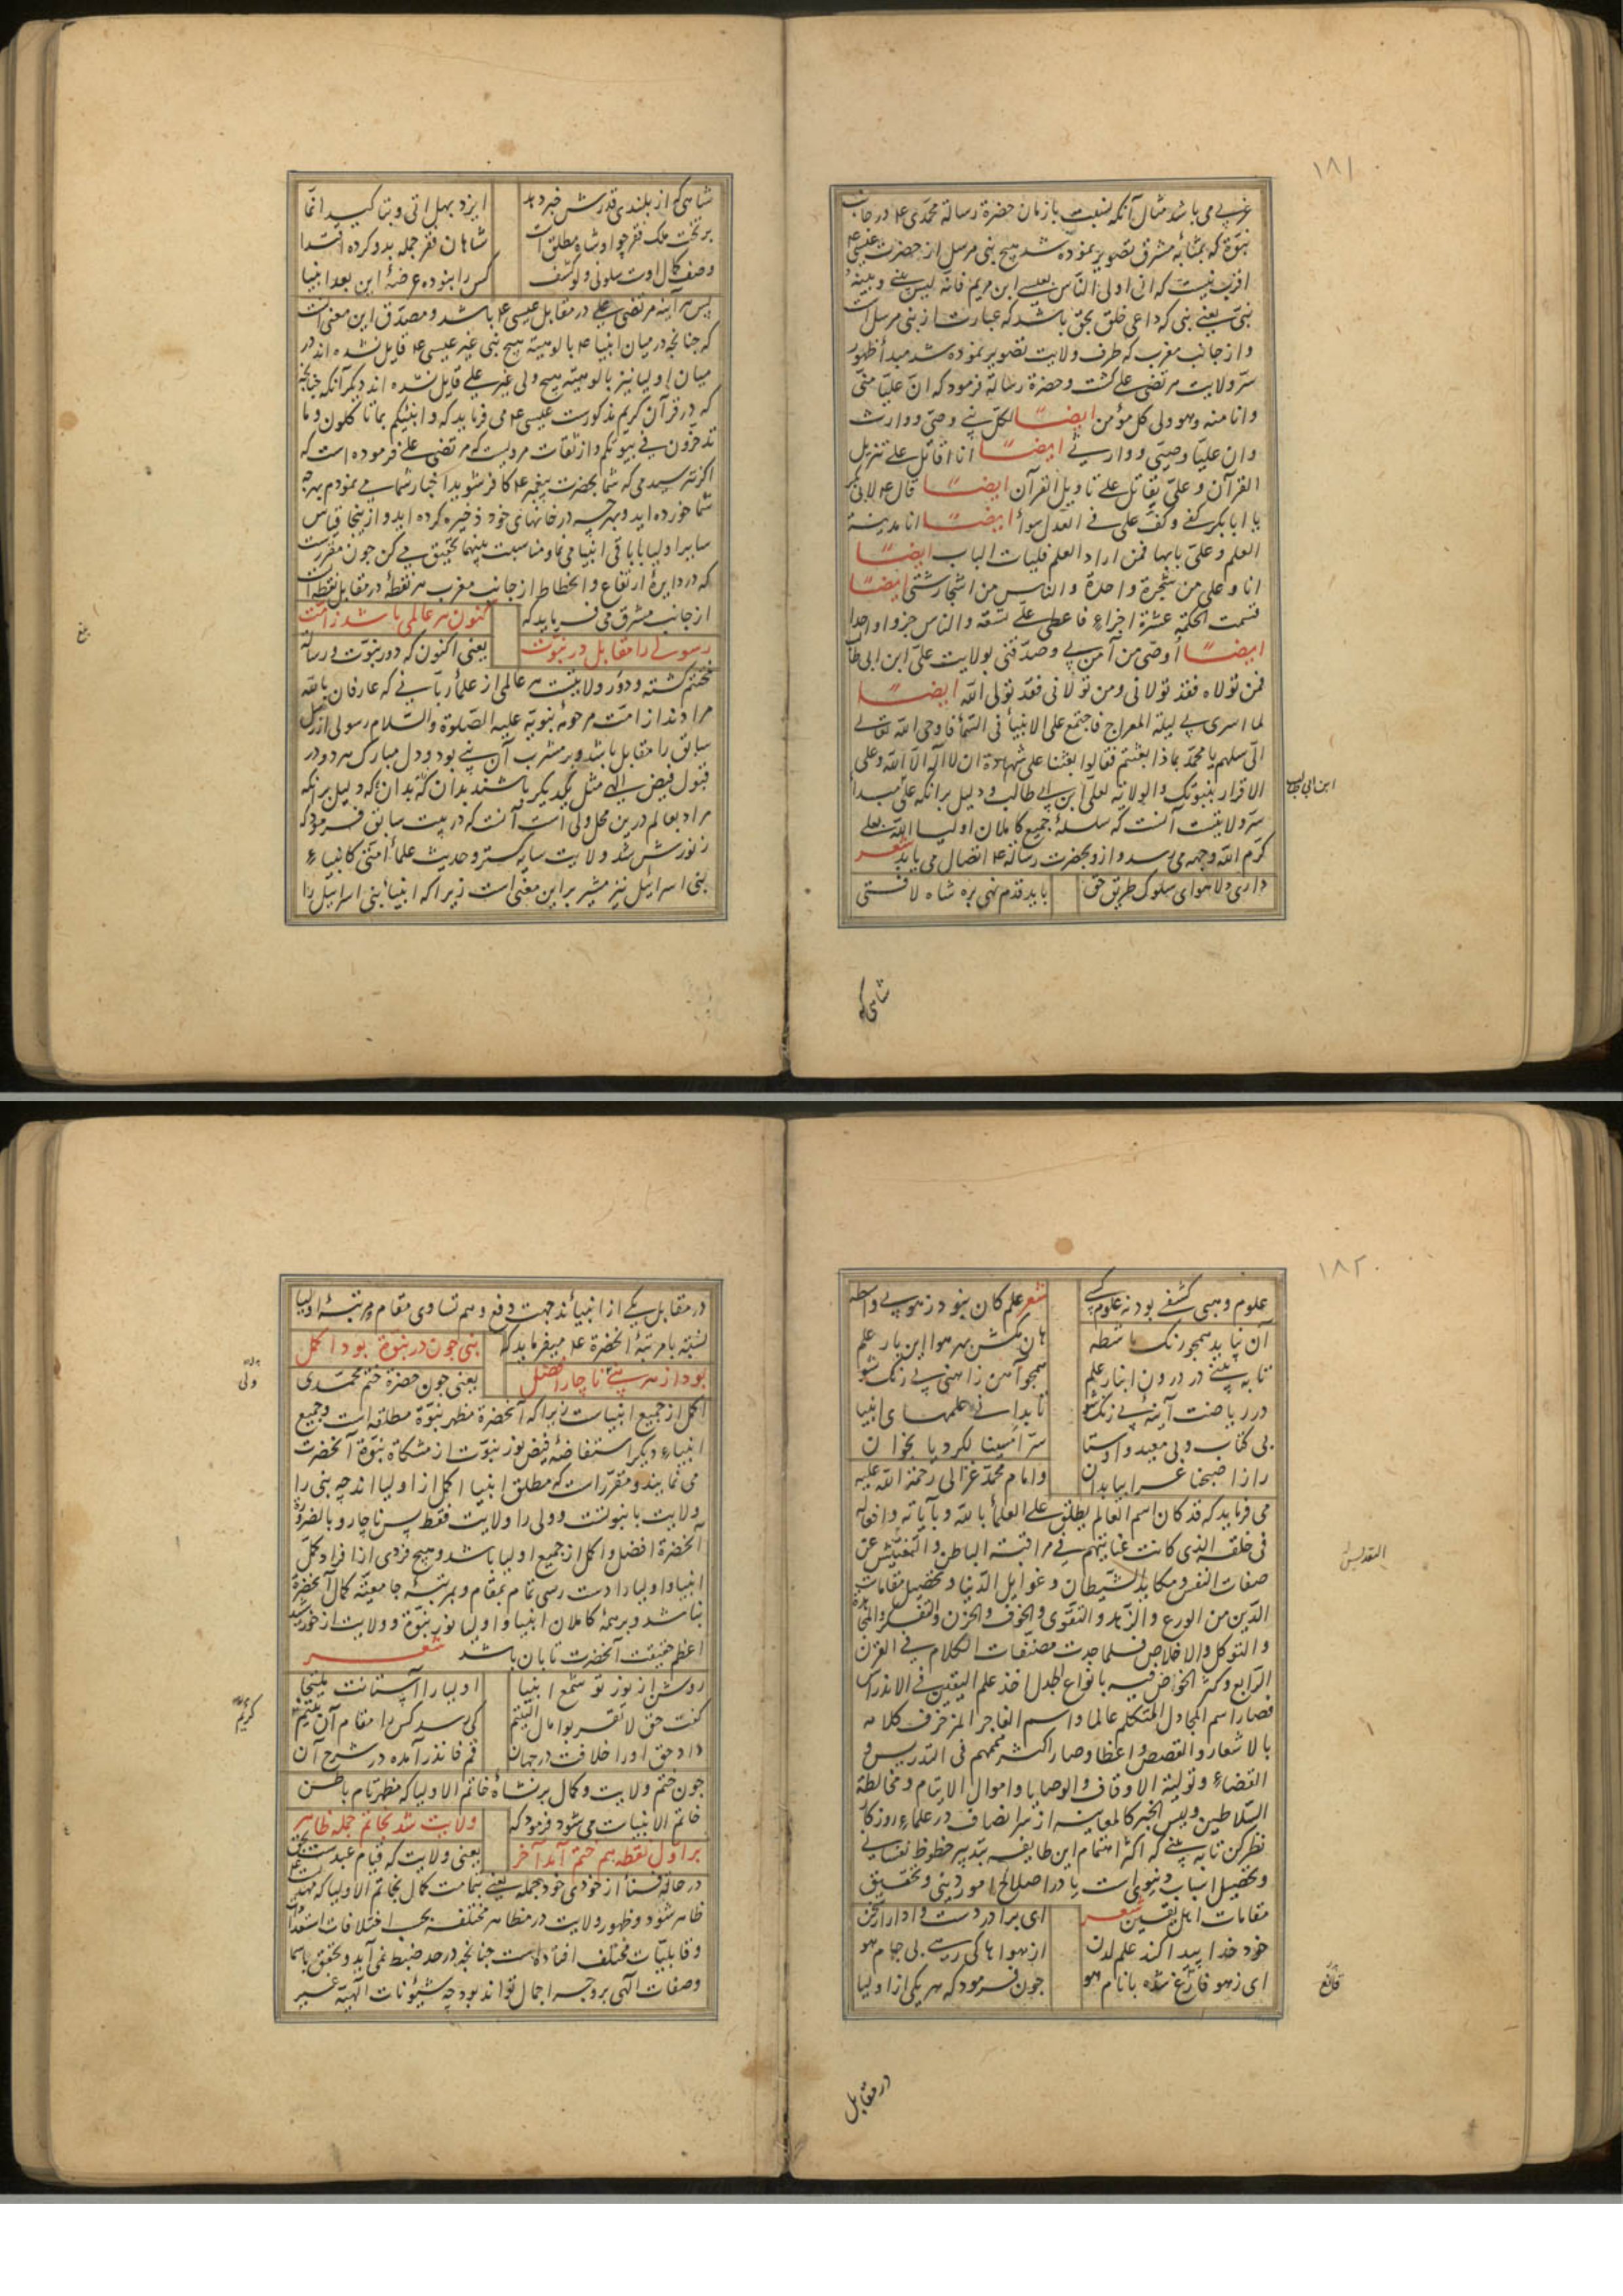 ۱۸۱
غربی می باشد مثال آنکه نسبت با زمان حضرة رسالة محمدی ع در جانب
نبوّة که بمثابه مشرق تصویر نموده شد هیچ نبی مرسل از حضرت عیسی ع
اقرب نیست که انی اولی الناس بعیسی ابن مریم فانه لیس بینی و بینه
نبیّ یعنی نبی که داعی خلق بحق باشد که عبارت از نبی مرسل است
و از جانب مغرب که طرف ولایت تصویر نموده شد مبدأ ظهور
سرّ ولایت مرتضی علی گشت و حضرة رسالة فرمود که انّ علیّا منّی
و انا منه و هو ولی کل مؤمن ایضًا لکل نبی وصیّ و وارث
و ان علیّا وصیّی و وارثی ایضًا انا اقاتل علی تنزیل
القرآن و علیّ یقاتل علی تاویل القرآن ایضًا قال ع لابی بکر
یا ابا بکر کفی و کفّ علی فی العدل سواٌ ایضًا انا مدینة
العلم و علیّ بابها فمن اراد العلم فلیات الباب ایضًا
انا و علی من شجرة واحدة و الناس من اشجار شتی ایضًا
قسمت الحکمة عشرة اجزاء فاعطی علی تسعة و الناس جزوا واحدا
ایضًا اوصی من آمن بی و صدّقنی بولایت علیّ ابن ابی طالب
فمن تولاه فقد تولانی و من تولانی فقد تولی الله ایضًا
لما اسری بی لیلة المعراج فاجتمع علی الانبیأ فی السّمأ فاوحی الله تعالی
الیّ سلهم یا محمد بماذا بعثتم فقالوا بعثنا علی شهادة ان لا اله الا الله و علی
الاقرار بنبوتک و الولایة لعلی ابن ابی طالب و دلیل بر آنکه علی مبدأ
ابن ابی طالب
سرّ ولایتست آنست که سلسلۀ جمیع کاملان اولیا الله بعلی
کرّم الله وجهه می رسد و از و بحضرت رسالة ع اتصال می یابد شعر
داری دلا هوای سلوک طریق حق باید قدم نهی بره شاه لافتی
شاهی که
شاهی که از بلندی قدرش خبر دهد ایزد بهل اتی و بتاکید انّما
بر تخت ملک فقر چو او شاه مطلق است شاهان فقر جمله بدو کرده اقتدا
وصف کمال اوست سلونی و لو کشف کس را نبوده عرضۀ این بعد انبیا
پس هر آینه مرتضی علی در مقابل عیسی ع باشد و مصدّق این معنی است
که چنانچه در میان انبیا ع بالوهیة هیچ نبی غیر عیسی ع قایل نشده اند در
میان اولیا نیز بالوهیّة هیچ ولی غیر علی قایل نشده اند دیکر آنکه چنانچه
که در قرآن کریم مذکورست عیسی ع می فرماید که و انبئکم بما تاکلون و ما
تدخرون فی بیوتکم و از ثقات مرویست که مرتضی علی فرموده است که
اکر نترسیدمی که شما بحضرت پیغمبر ع کافر شوید اخبار شما می نمودم بهرچه
شما خورده اید و بهرچه در خانهای خود ذخیره کرده اید و از ینجا قیاس
سایر اولیا با باقی انبیا می نما و مناسبت بینهما تحقیق می کن چون مقررست
که در دایرۀ ارتفاع و انحطاط از جانب مغرب هر نقطۀ در مقابل نقطه ایست
از جانب مشرق می فرماید که کنون هر عالمی باشد ز امت
رسولی را مقابل در نبوّت یعنی اکنون که دور نبوّت و رسالة
مختتم کشته و دور ولایتست هر عالمی از علمأ ربّانی که عارفان بالله
مرادند از امّت مرحومۀ نبویّه علیه الصّلوة و السّلام رسولی از رسل
سابق را مقابل باشد و بر مشرب آن نبی بود و دل مبارک هر دو در
قبول فیض الهی مثل یکدیکر باشند بدان که دلیل بر آنکه
مراد بعالم درین محل ولی است آنست که در بیت سابق فرمود که
ز نورش شد ولایت سایه کستر و حدیث علمأ امّتی کانبیاء
بنی اسرائیل نیز مشیر بر این معنی است زیرا که انبیأ بنی اسرائیل را
۱۸۲
علوم وهبی کشفی بود نه علوم کسبی شعر علم کان نبود ز هو بی واسطه
آن نپاید همچو رنک ماشطه هان مکش بهر هوا این بار علم
تا به بینی در درون انبار علم همچو آهن ز آهنی بی رنک شو
در ریاضت آینۀ بی زنک شو تا بدانی علمهای انبیا
بی کتاب و بی معید و اوستا سرّ امسینا لکردیا بخوان
راز اصبحنا عرابیا بدان و امام محمد غزالی رحمة الله علیه
می فرماید که قد کان اسم العالم یطلق علی العلمأ بالله و بآیاته و افعاله
فی خلقه الذی کانت عنایتهم فی مراقبة الباطن و التفتیش عن
صفات النفس و مکاید الشیطان و غوایل الدّنیا و تحصیل مقامات
الدّین من الورع و الزّهد و التقوی و الخوف و الحزن و التفکر و المجاهدة
و التوکل و الاخلاص فلما حدث مصنّفات الکلام فی القرن
الرّابع و کثر الخواض فیه بانواع الجدل اخذ علم الیقین فی الاندراس
فصار اسم المجادل المتکلم عالما و اسم الفاجر المزخرف کلامه
بالاشعار و القصص واعظا و صار اکثر همهم فی التدریس و
القضاء و تولیة الاوقاف و الوصایا و اموال الایتام و مخالطة
السّلاطین و لیس الخبر کالمعاینة از سر انصاف در علماء روزکار
نظر کن تا به بینی که اکثر اهتمام این طایفه بتدبیر حظوظ نفسانی
و تحصیل اسباب دنیوی است یا در اصلاح امور دینی و تحقیق
مقامات اهل یقین شعر ای برادر دست وادار از سخن
خود خدا پیدا کند علم لدن از هواها کی رهی بی جام هو
ای ز هو قانع شده با نام هو چون فرمود که هر یکی از اولیا
قانع
در مقابل
در مقابل یکی از انبیأند جهت دفع وهم تساوی مقام و مرتبۀ اولیا
نسبة با مرتبۀ آنحضرة ع میفرماید که نبی چون در نبوّت بود اکمل
بود از هر نبی ناچار افضل یعنی چون حضرة ختم محمّدی
ولی
اکمل از جمیع انبیاست زیرا که آنحضرة مظهر نبوّة مطلقه است و جمیع
انبیاء دیکر استفاضۀ فیض نور نبوّت از مشکاة نبوّة آنحضرت
می نمایند و مقرّر است که مطلق انبیا اکمل از اولیا اند چه نبی را
ولایت با نبوتست و ولی را ولایت فقط پس ناچار و بالضرورة
آنحضرة افضل و اکمل از جمیع اولیا باشد و هیچ فردی از افراد کمّل
انبیا و اولیا را دست رسی تمام بمقام و مرتبۀ جامعیّة کمال آنحضرة
نباشد و بر همۀ کاملان انبیا و اولیا نور نبوّة و ولایت از خورشید
اعظم حقیقت آنحضرت تابان باشد شعر
روشن از نور تو شمع انبیا اولیا را آستانت ملتجا
کفت حق لا تقربوا مال الیتیم کی رسد کس را مقام آن یتیم
کریم
داد حق او را خلافت در جهان قم فانذر آمده در شرح آن
چون ختم ولایت و کمال بر نشأۀ خاتم الاولیا که مظهر تام باطن
خاتم الانبیاست می شود فرمود که ولایت شد بخاتم جمله ظاهر
بر اوّل نقطه هم ختم آمد آخر یعنی ولایت که قیام عبد است بحق
در حالة فنأ از خودی خود جمله یعنی بتمامت کمال بخاتم الاولیا که مهدیست
ظاهر شود و ظهور ولایت در مظاهر مختلفه بحسب اختلافات استعدادات
و قابلیّات مختلف افتاده است چنانچه در حد ضبط نمی آید و تحقق باسما
و صفات الهی بر وجه اجمال تواند بود چه شئونات الهیّة غیر